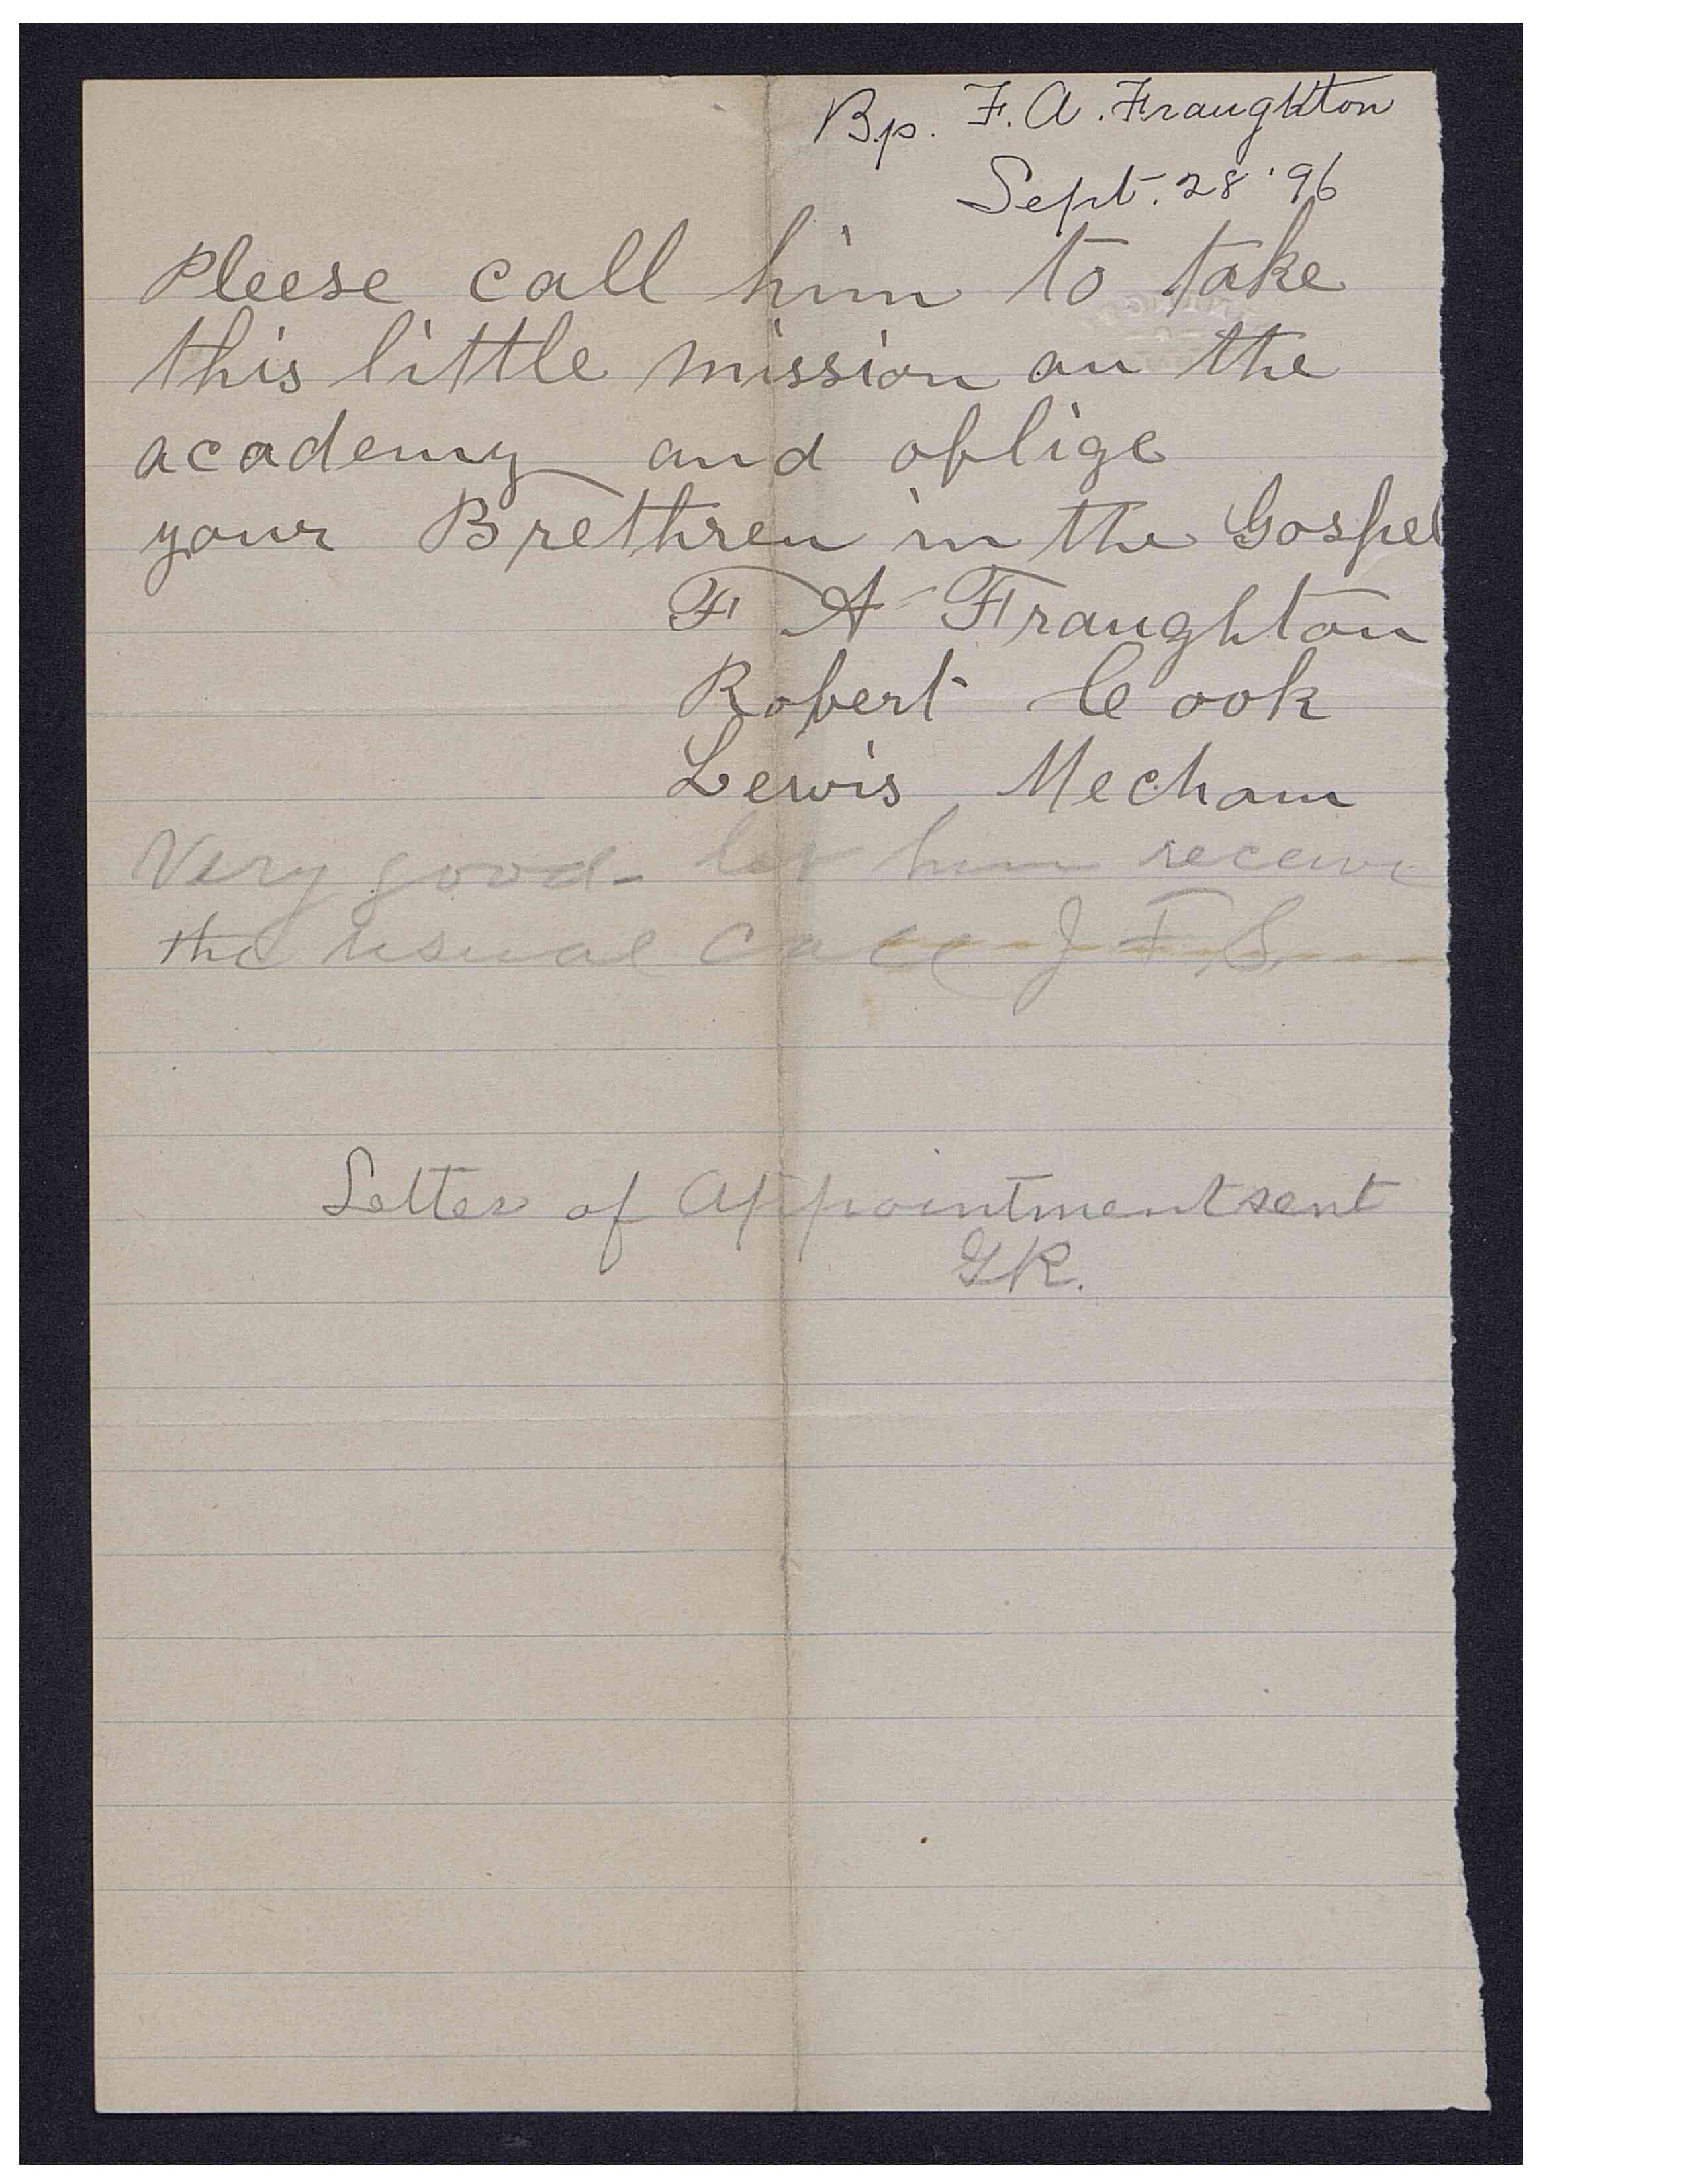 Bp. F. A. Fraughton
Sept. 28 '96
Pleese call him to take
this little mission an the
academy and oblige
your Brethren in the Gospel
F A Fraughton
Robert Cook
Lewis Mecham
Very good - let him receive
the usual call J F. S.
Letter of Appointment sent
GR.